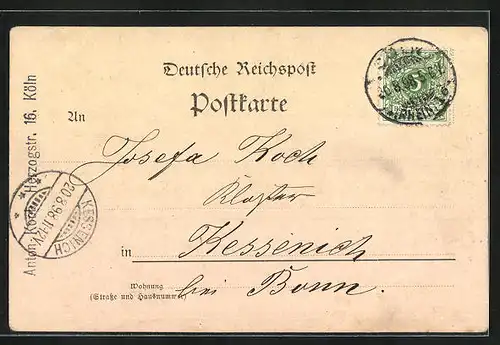 Deutsche Reichspost
Postkarte
An
Josefa Koch
Kloster
in Kessenich
Wohnung
(Straße und Hausnummer)
bei Bonn.
Herzogstr. 16, Köln
KESSENICH
20.8.98
20.8.98
(RHEIN)
5